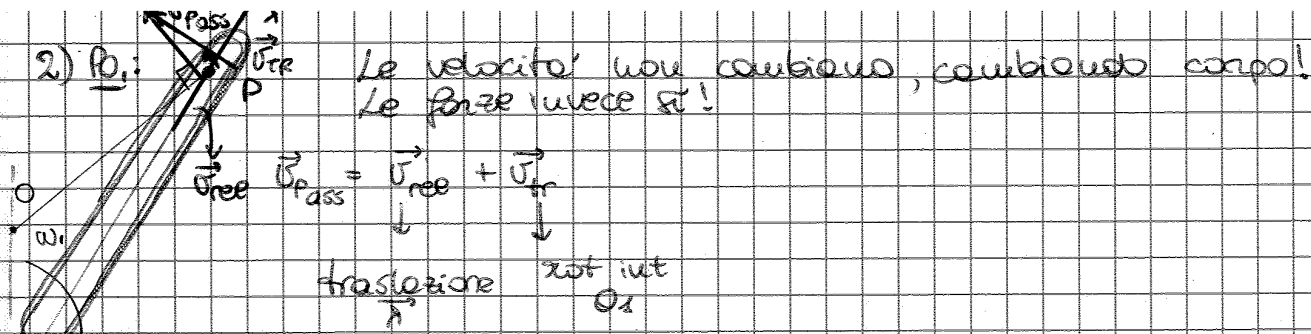 v⃗Pass
2) PO₁: v⃗TR Le velocità non cambiano, cambiando corpo!
P Le forze invece sì!
v⃗rel v⃗Pass = v⃗rel + v⃗tr
O
ω₁
traslazione rot int
λ⃗ O₁